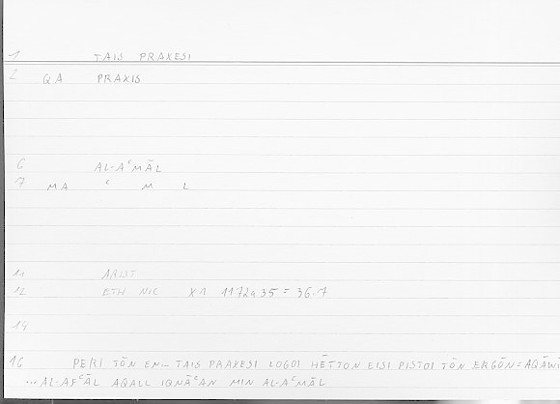 1 TAIS PRAXESI
2 QA PRAXIS
6 AL-AʿMĀL
7 MA ʿ M L
11 ARIST
12 ETH NIC X1 1172a35 = 36.7
14
16 PERI TŌN EN TAIS PRAXESI LOGOI HĒTTON EISI PISTOI TŌN ERGŌN = AQĀWĪ
... AL-AFʿĀL AQALL IQNĀʿAN MIN AL-AʿMĀL